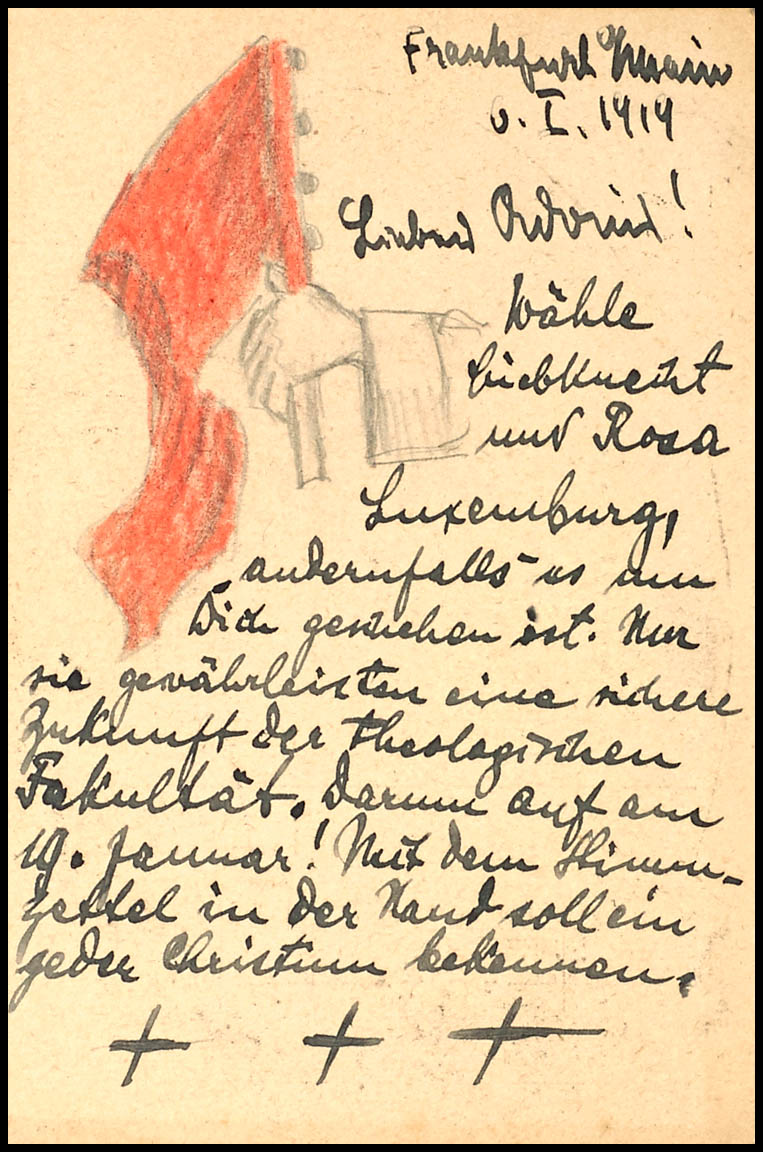 Frankfurt Main
6. I. 1919
Wähle
Liebknecht
und Rosa
Luxemburg,
andernfalls es um
Dich geschehen ist. Nur
sie gewährleisten eine sichere
Zukunft der theologischen
Fakultät. Darum auf am
19. Januar! Mit dem Stimm-
zettel in der Hand soll ein
jeder Christum bekennen.
+ + +